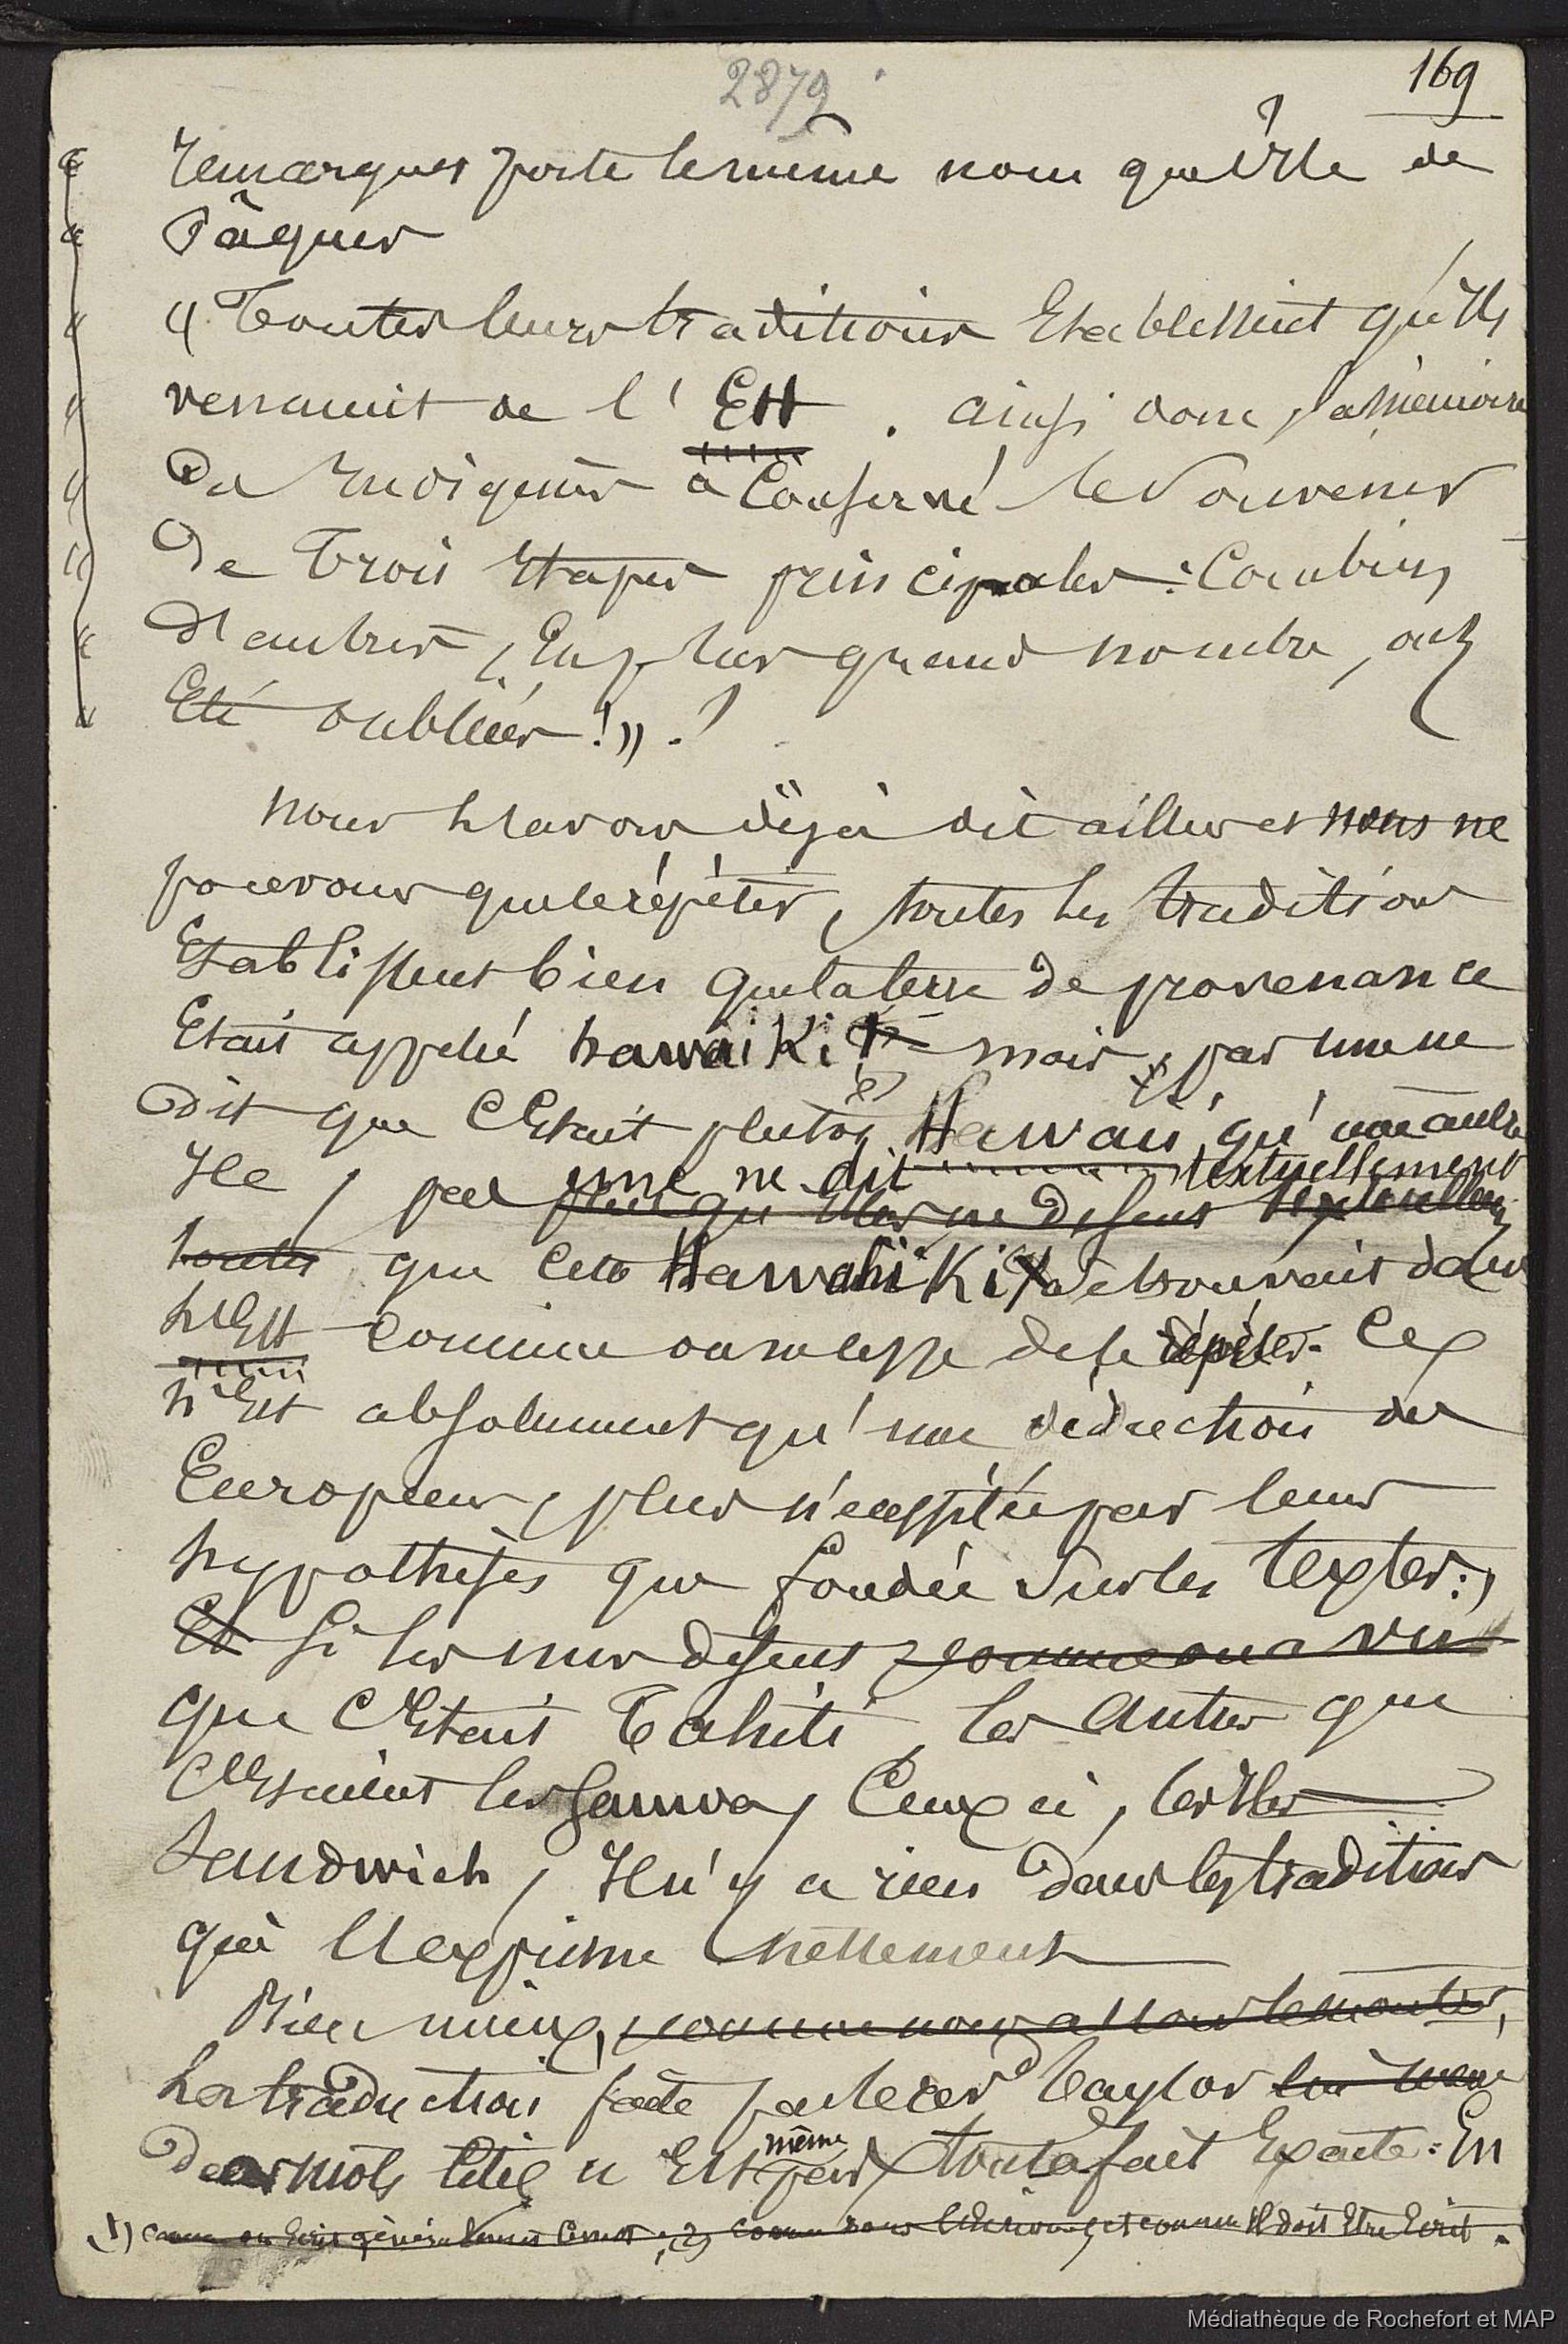 2879
169
remarques porte le même nom que l'Ile de
Pâques
" Toutes leurs traditions Etablissent qu'Ils
venaient de l' Est . ainsi donc, la mémoire
Des Indigènes a Conservé le Souvenir
De trois Etapes principales : Combien
d'autres, En plus grand nombre, ont
Eté oubliées ! » .
nous l'avons déjà dit ailleurs et nous ne
pouvons que le répéter, toutes les traditions
Etablissent bien que la terre de provenance
Etait appelée hawaiki mais, pas une ne
dit que C'Etait plutôt Hawaii qu'une autre
Ile, pas une ne dit textuellement
plus qu'elles ne disent textuellement
toutes que cette Hawahiki se trouvait dans
l'Est comme on ne cesse de le répéter. Ce
n'Est absolument qu'une déduction des
Européens, plus nécessitée par leurs
hypothèses que fondée sur les textes :
Et Si les uns disent comme on a vu
que C'Etait Tahiti, les autres que
C'Etaient les Samoa, Ceux ci, les Iles
Sandwich, Il n'y a rien dans les traditions
qui l'exprime nettement
Bien mieux, comme nous allons le montrer,
La traduction faite par le rev^d Taylor lui même
Des mots n'Est même pas tout à fait Exacte : En
(1) comme on Ecrit généralement ; (2) comme nous et comme Il doit Etre Ecrit .
Médiathèque de Rochefort et MAP